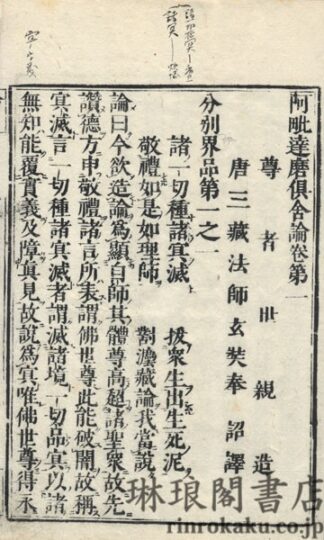 阿毗達磨俱舍論卷第一
尊者世親造
唐三藏法師玄奘奉 詔譯
分别界品第一之一
諸一切種諸冥滅 拔衆生出生死泥
敬禮如是如理師 對灋藏論我當說
論曰今欲造論爲顯自師其體尊高超諸聖衆故先
讚德方申敬禮諸言所表謂佛世尊此能破闇故稱
冥滅言一切種諸冥滅者謂滅諸境一切品冥以諸
無知能覆實義及障真見故說爲冥唯佛世尊得永
琳琅閣書店
rinrokaku.co.jp